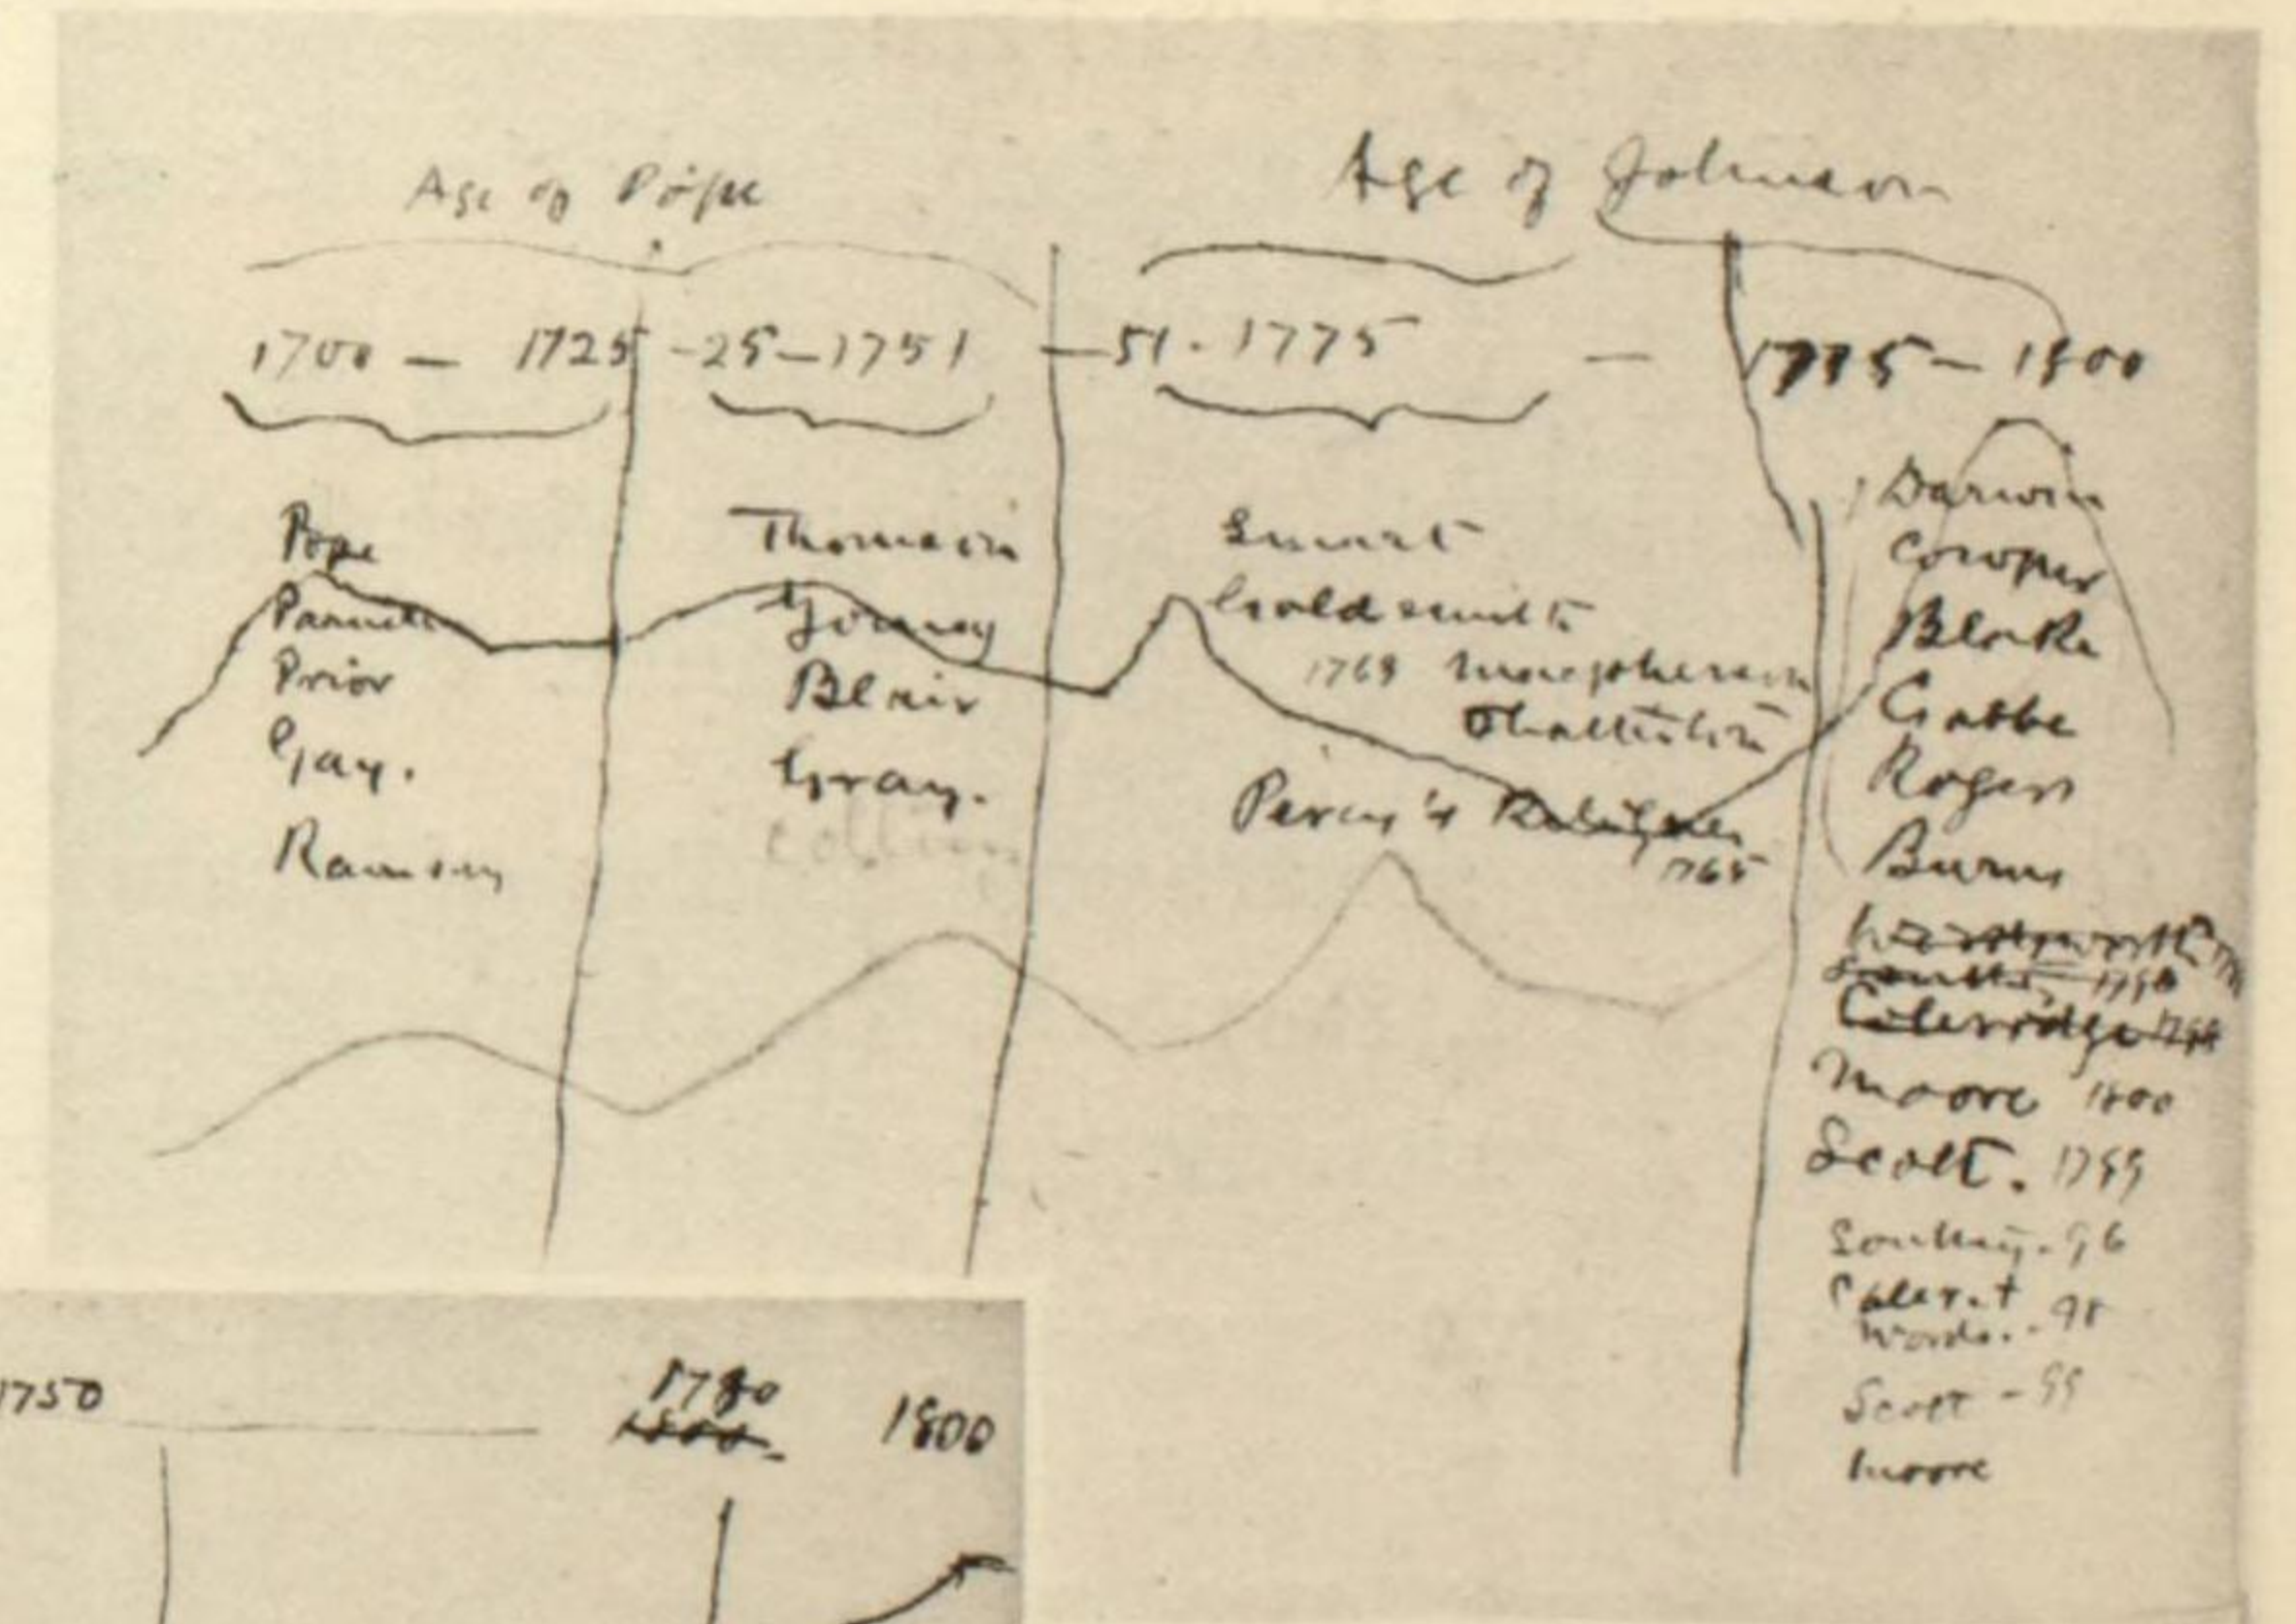 Age of Pope
Age of Johnson
1700 — 1725 -25—1751 —51 - 1775 — 1775 — 1800
Pope
Parnell
Prior
Gay.
Ramsey
Thomson
Young
Blair
Gray.
Collins
Smart
Goldsmith
Macpherson
Chatterton
Percy's Reliques
1765
Darwin
Cowper
Blake
Crabbe
Rogers
Burns
Wordsworth
Coleridge
Moore 1800
Scott. 1799
Southey. 96
Coler. +
Words. - 98
Scott - 99
Moore
1750
1780
1800
1800